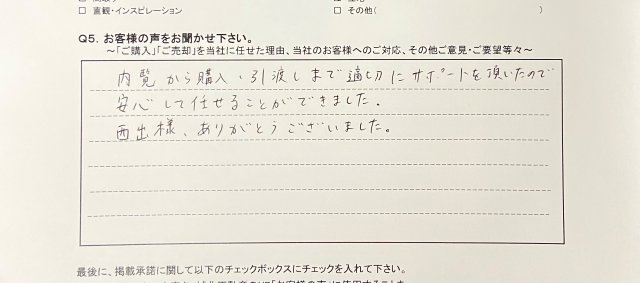 □ 直観・インスピレーション □ その他( )
Q5. お客様の声をお聞かせ下さい。
～「ご購入」「ご売却」を当社に任せた理由、当社のお客様へのご対応、その他ご意見・ご要望等々～
内覧から購入・引渡しまで適切にサポートを頂いたので
安心して任せることができました。
西出様、ありがとうございました。
最後に、掲載承諾に関して以下のチェックボックスにチェックを入れて下さい。